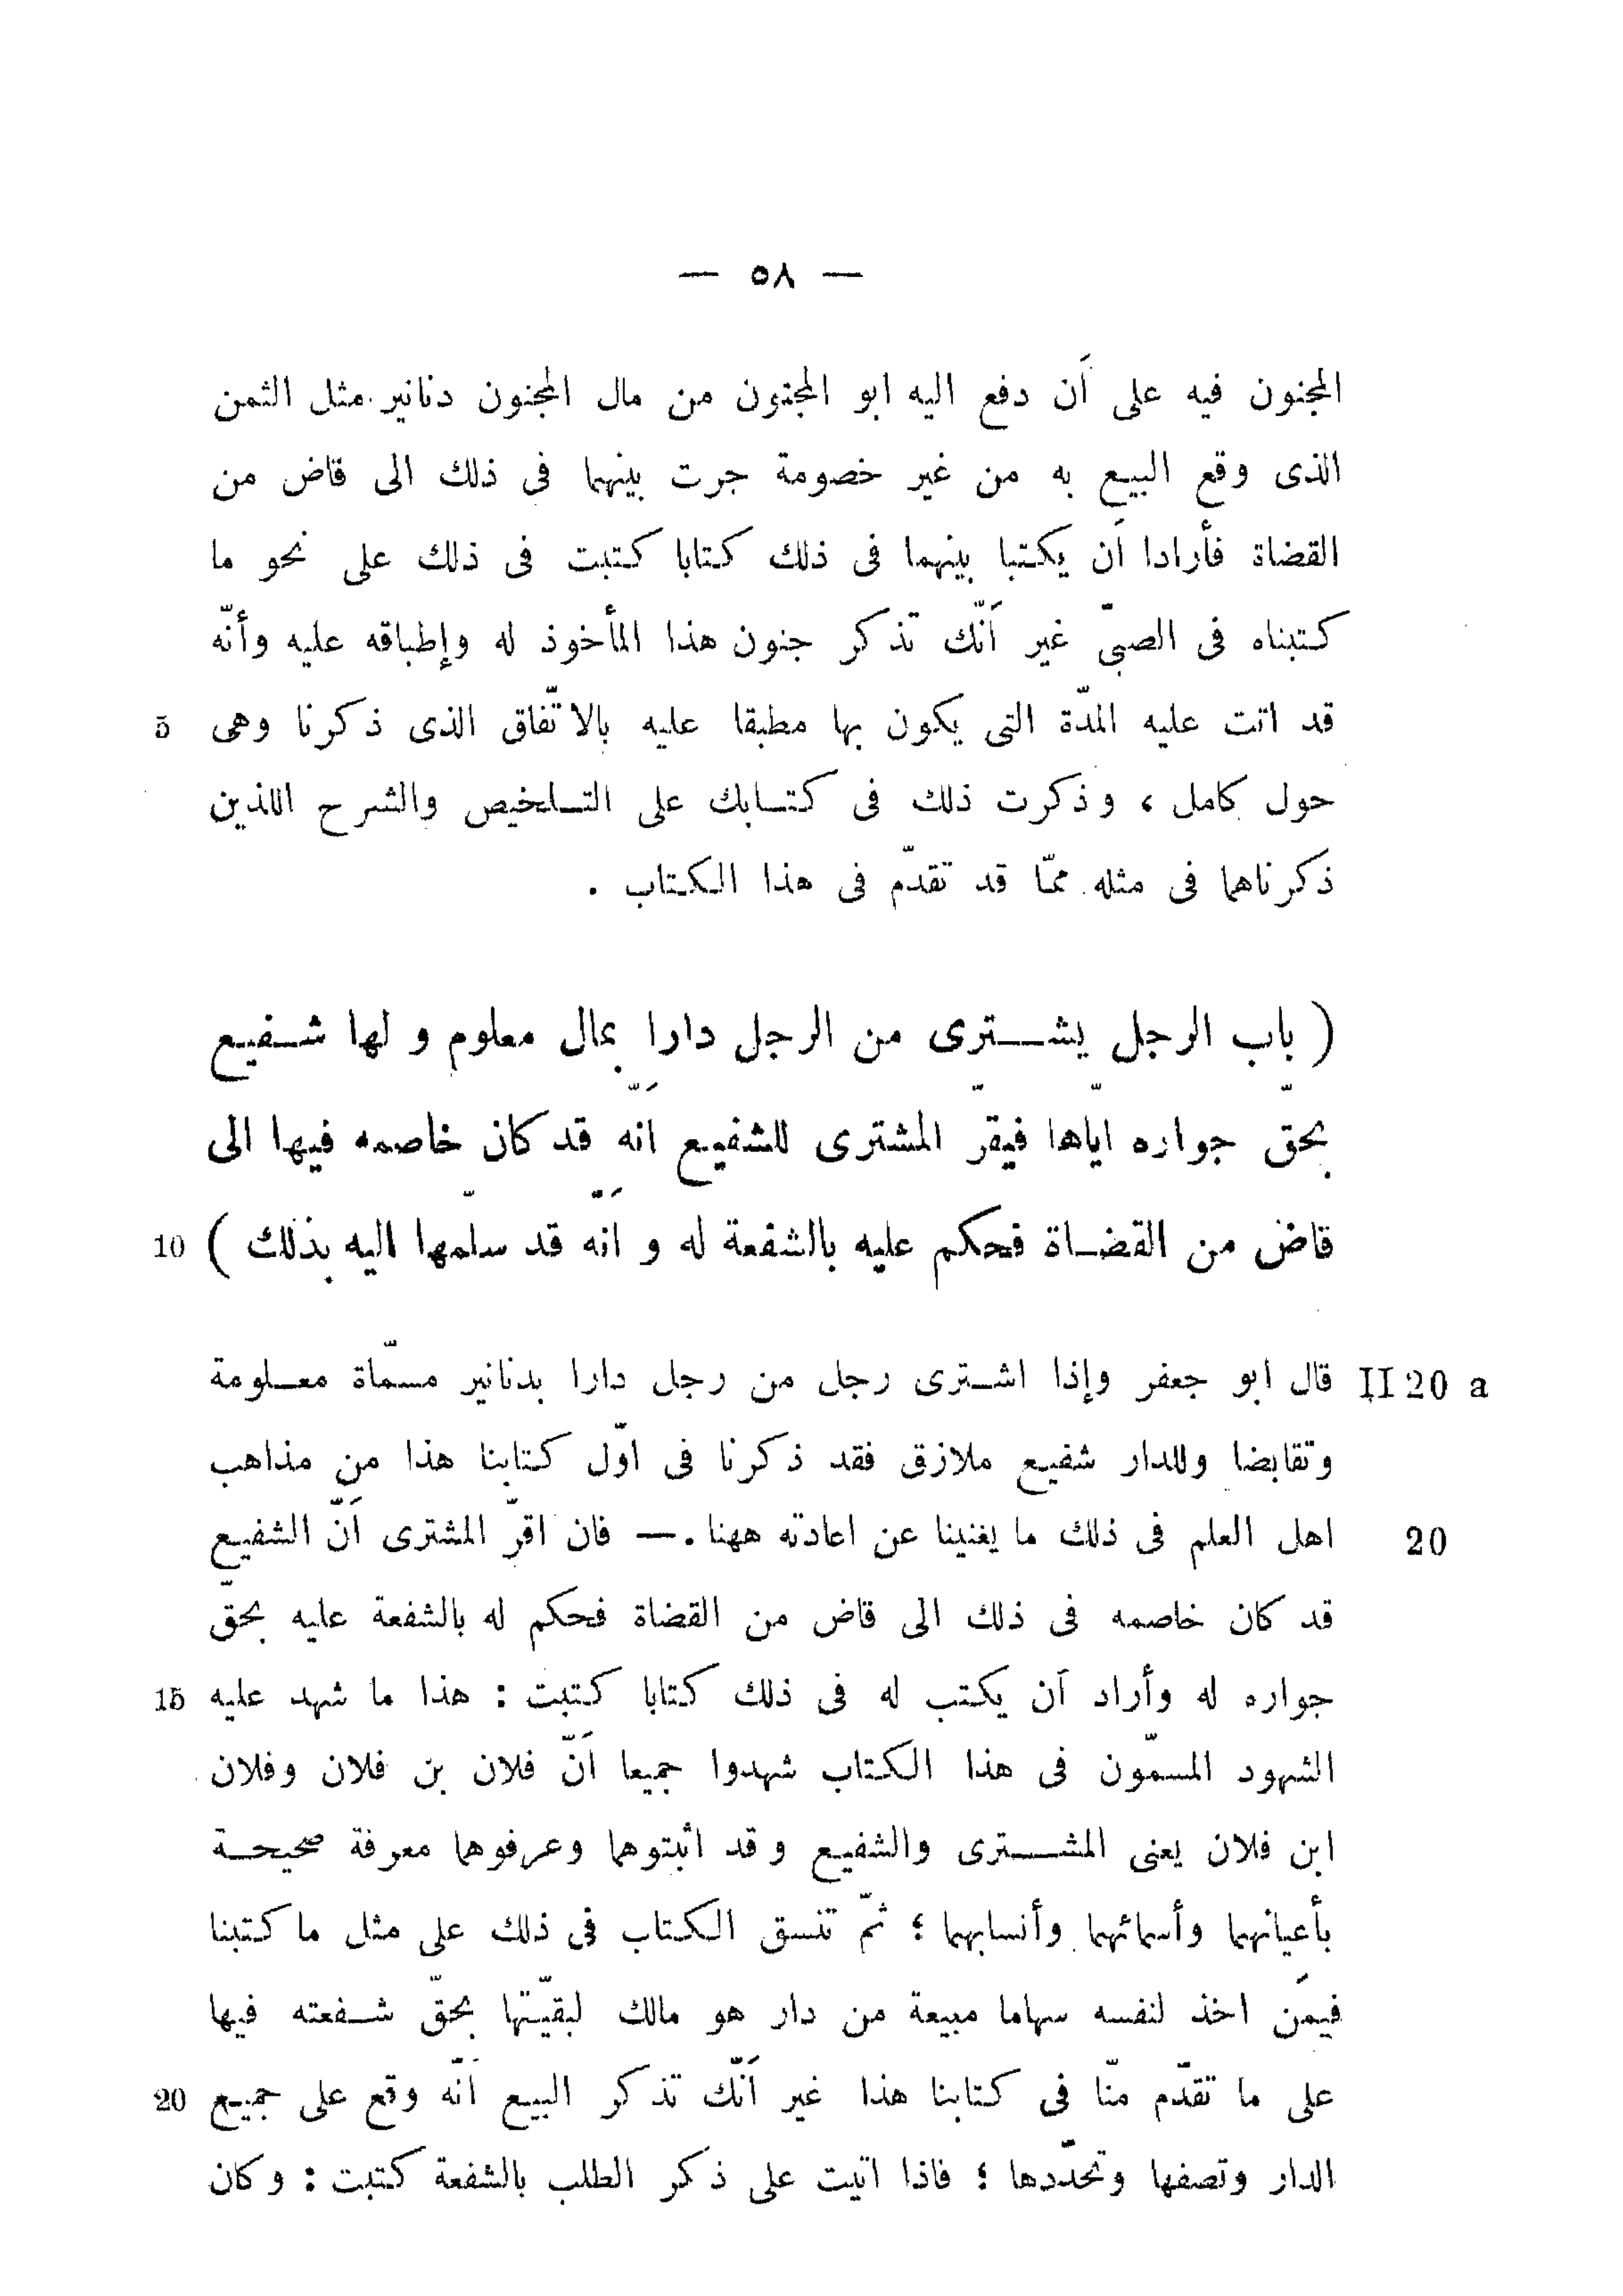 — ٥٨ —
المجنون فيه على أن دفع اليه ابو المجنون من مال المجنون دنانير مثل الثمن
الذى وقع البيع به من غير خصومة جرت بينهما فى ذلك الى قاض من
القضاة فأرادا أن يكتبا بينهما فى ذلك كتابا كتبت فى ذلك على نحو ما
كتبناه فى الصبىّ غير أنّك تذكر جنون هذا المأخوذ له وإطباقه عليه وأنّه
5 قد اتت عليه المدّة التى يكون بها مطبقا عليه بالاتّفاق الذى ذكرنا وهى
حول كامل ، وذكرت ذلك فى كتابك على التلخيص والشرح اللذين
ذكرناهما فى مثله ممّا قد تقدّم فى هذا الكتاب .
( باب الرجل يشترى من الرجل دارا بمال معلوم و لها شفيع
بحقّ جواره ايّاها فيقرّ المشترى للشفيع انّه قد كان خاصمه فيها الى
10 قاض من القضاة فحكم عليه بالشفعة له و انّه قد سلّمها اليه بذلك )
II 20 a قال ابو جعفر وإذا اشترى رجل من رجل دارا بدنانير مسمّاة معلومة
وتقابضا وللدار شفيع ملازق فقد ذكرنا فى اوّل كتابنا هذا من مذاهب
20 اهل العلم فى ذلك ما يغنينا عن اعادته ههنا . — فان اقرّ المشترى أنّ الشفيع
قد كان خاصمه فى ذلك الى قاض من القضاة فحكم له بالشفعة عليه بحقّ
15 جواره له وأراد أن يكتب له فى ذلك كتابا كتبت : هذا ما شهد عليه
الشهود المسمّون فى هذا الكتاب شهدوا جميعا أنّ فلان بن فلان وفلان
ابن فلان يعنى المشترى والشفيع وقد اثبتوهما وعرفوهما معرفة صحيحة
بأعيانهما وأسمائهما وأنسابهما ؛ ثمّ تنسق الكتاب فى ذلك على مثل ما كتبنا
فيمَن اخذ لنفسه سهاما مبيعة من دار هو مالك لبقيّتها بحقّ شفعته فيها
20 على ما تقدّم منّا فى كتابنا هذا غير أنّك تذكر البيع أنّه وقع على جميع
الدار وتصفها وتحدّدها ؛ فاذا اتيت على ذكر الطلب بالشفعة كتبت : وكان